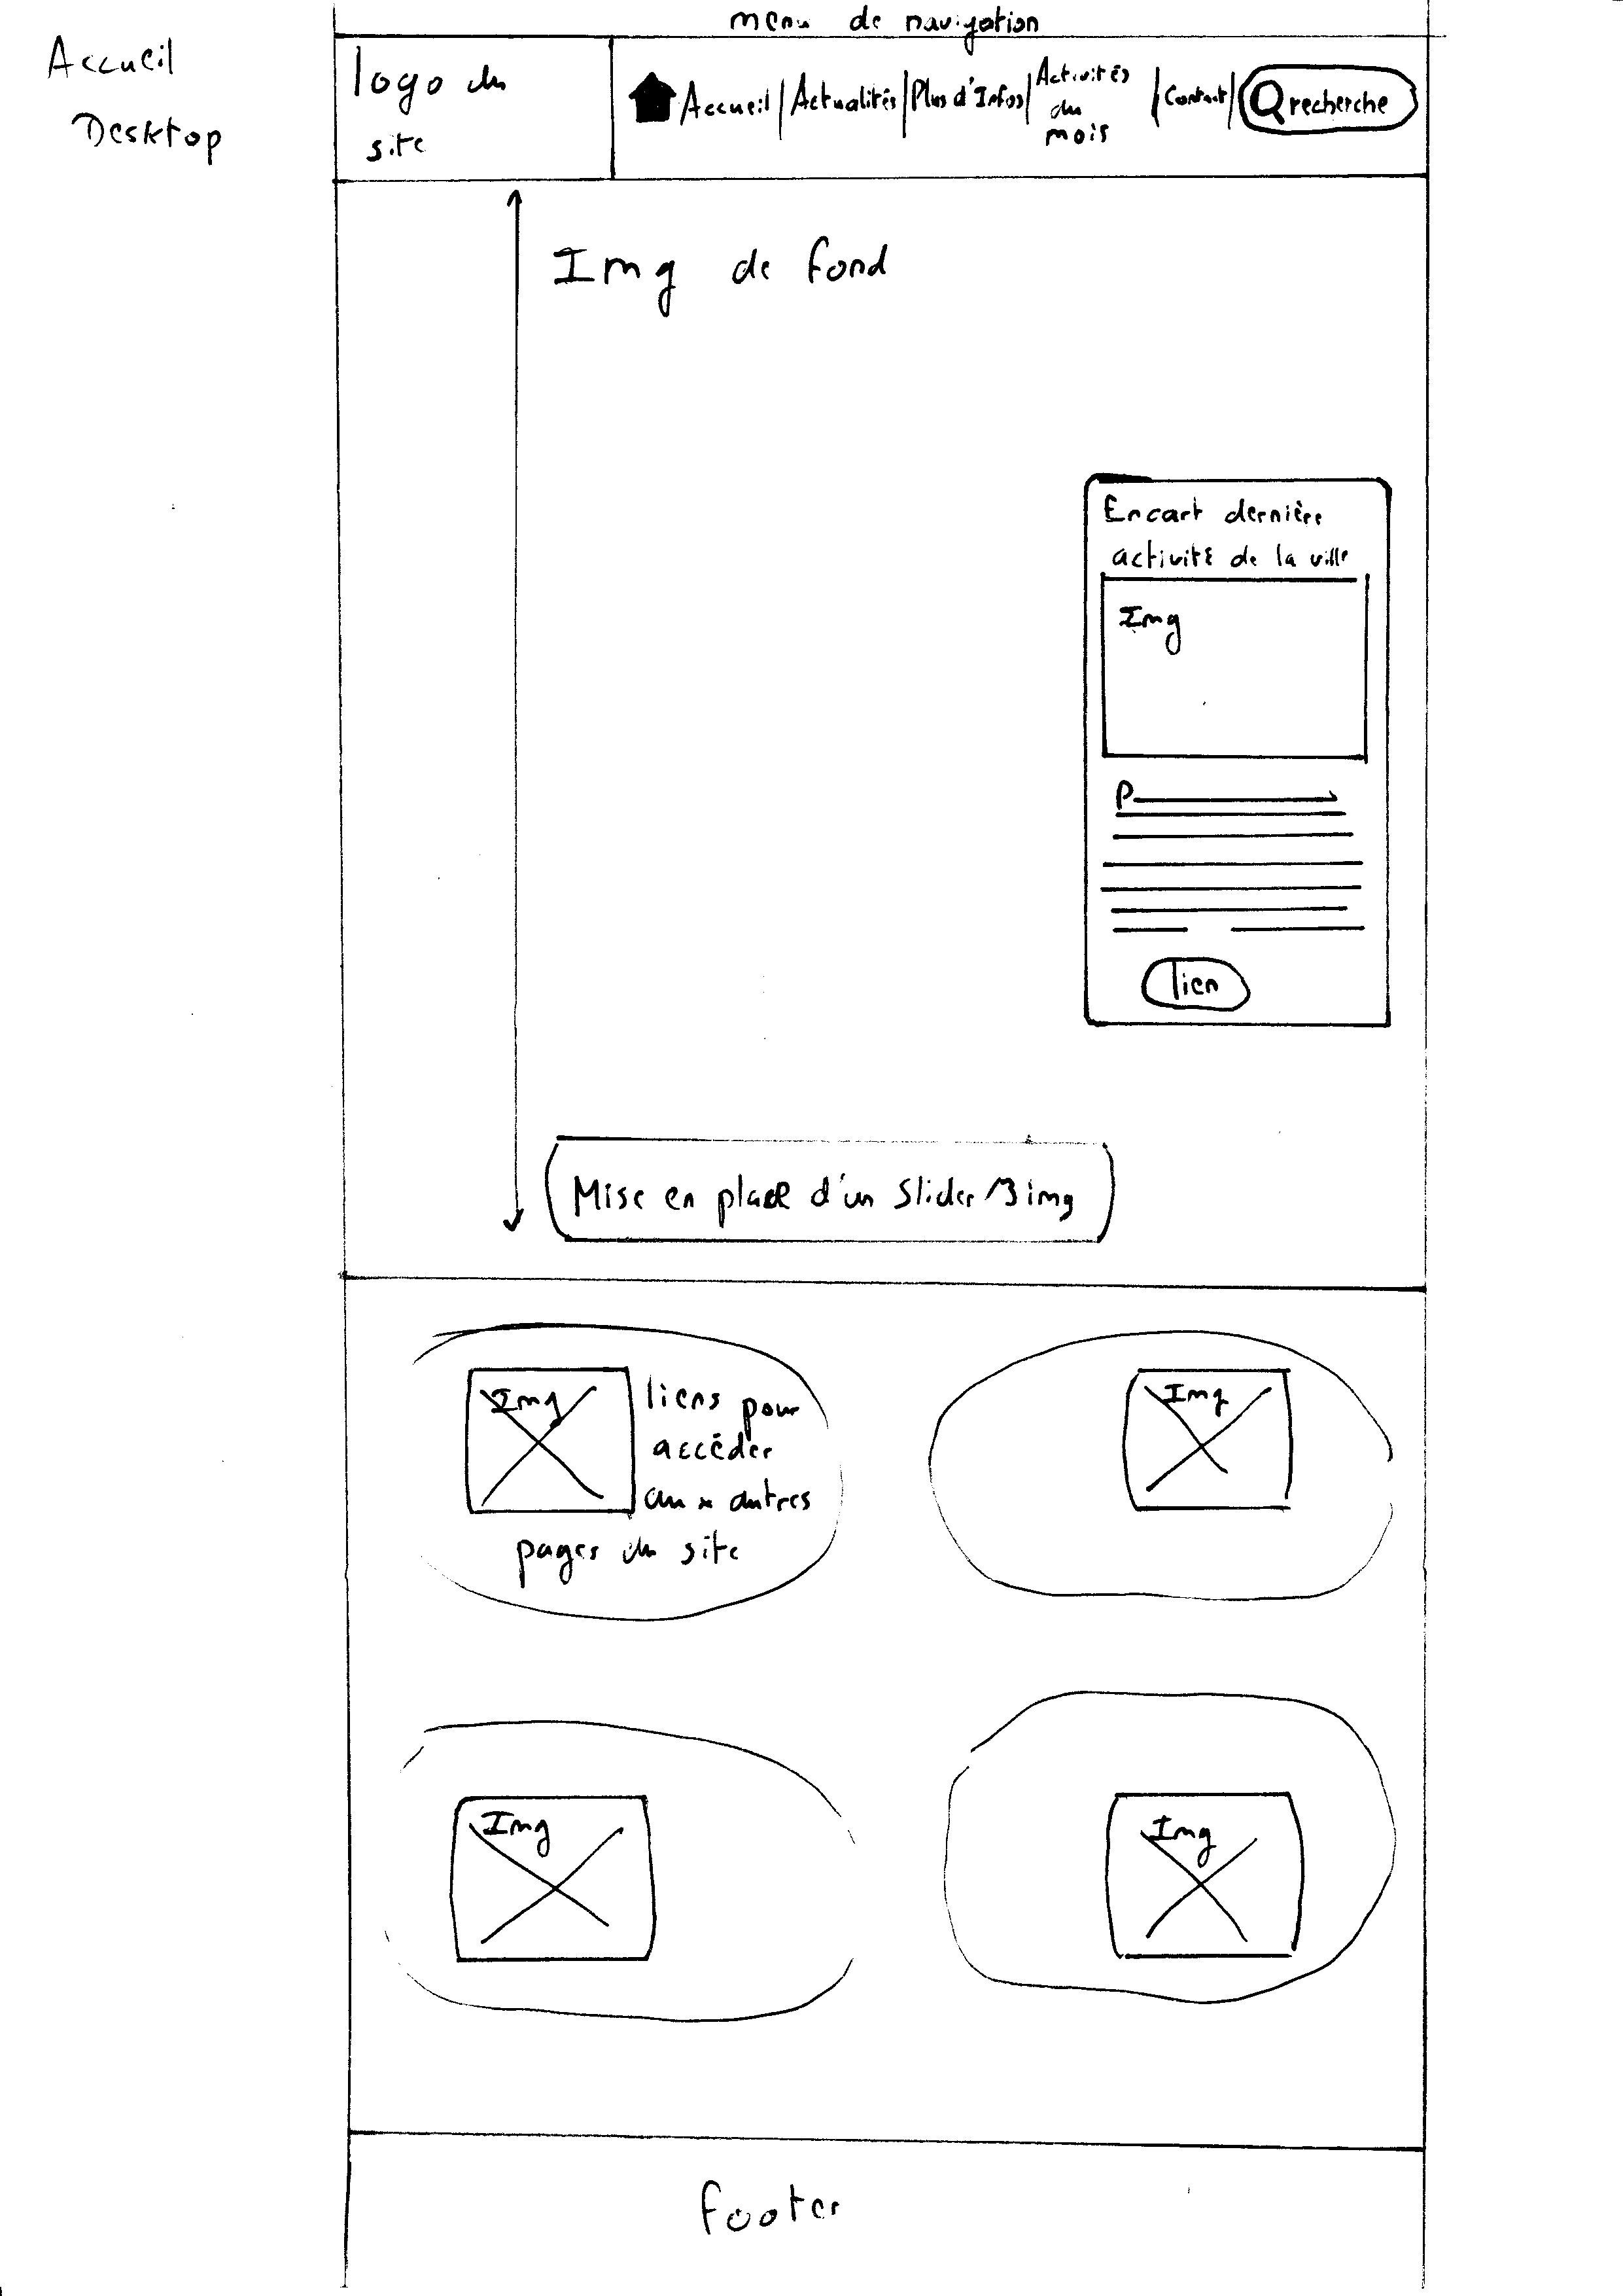 menu de navigation
Accueil
Desktop
logo du
site
Accueil | Actualités | Plus d'Infos | Activités
du
mois
| Contact |
recherche
Img de fond
Encart dernière
activité de la ville
Img
P
lien
Mise en place d'un Slider /3 img
Img
liens pour
accéder
aux autres
pages du site
Img
Img
Img
footer